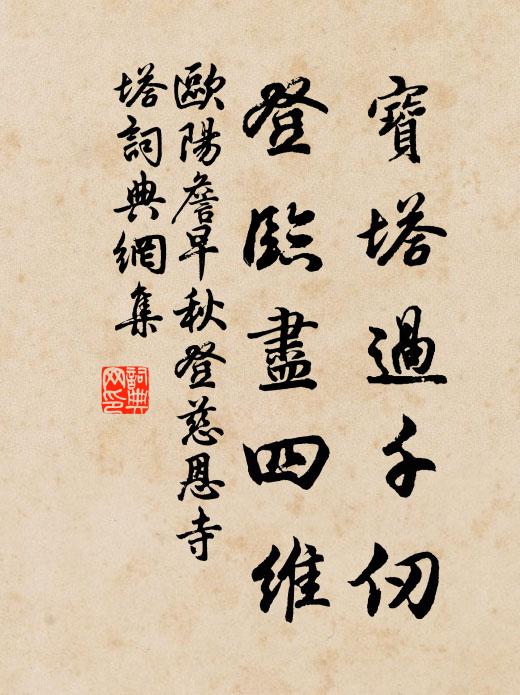 寶塔過千仞
登臨盡四維
歐陽詹早秋登慈恩寺
塔詞典網集
詞典網印